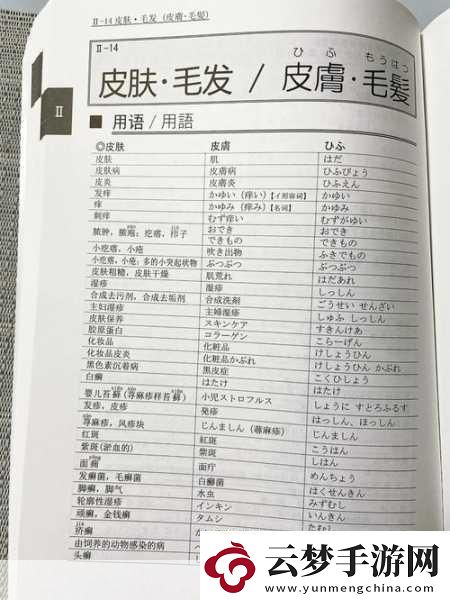 Ⅱ-14 皮肤・毛发（皮膚・毛髪）
Ⅱ-14
ひ ふ もうはつ
皮肤・毛发 / 皮膚・毛髪
Ⅱ
■ 用语 / 用語
◎皮肤 皮膚 ひふ
皮肤 肌 はだ
皮肤病 皮膚病 ひふびょう
皮炎 皮膚炎 ひふえん
发痒 かゆい（痒い）【イ形容词】 かゆい
痒 かゆみ（痒み）【名词】 かゆみ
刺痒 むず痒い むずがゆい
脓肿，脓疱；疙瘩，疹子 おでき おでき
できもの できもの
小疙瘩，小疮 吹き出物 ふきでもの
小疙瘩，小疮；多的小突起状物 ぶつぶつ ぶつぶつ
皮肤粗糙，皮肤干燥 肌荒れ はだあれ
湿疹 湿疹 しっしん
合成去污剂，合成去垢剂 合成洗剤 ごうせい せんざい
主妇湿疹 主婦湿疹 しゅふ しっしん
皮肤保养 スキンケア すきんけあ
胶原蛋白 コラーゲン こらーげん
化妆品 化粧品 けしょうひん
化妆品皮炎 化粧品かぶれ けしょうひん かぶれ
黑色素沉着病 黒皮症 こくひしょう
白癣 はたけ はたけ
婴儿苔藓（荨麻疹样苔藓） 小児ストロフルス しょうに すとろふるす
发疹，皮疹 発疹 はっしん，ほっしん
荨麻疹，风疹块 じんましん（蕁麻疹） じんましん
红斑 紅斑 こうはん
紫斑（淤血的） 紫斑 しはん
面疔 めんちょう
发癣菌，毛癣菌 白癬菌 はくせんきん
脚癣，脚气 水虫 みずむし
轮廓性湿疹 インキン いんきん
顽癣，金钱癣 タムシ たむし
疥癣
由饲养的动物感染的病
头癣
云梦手游网
www.yunmengchina.com